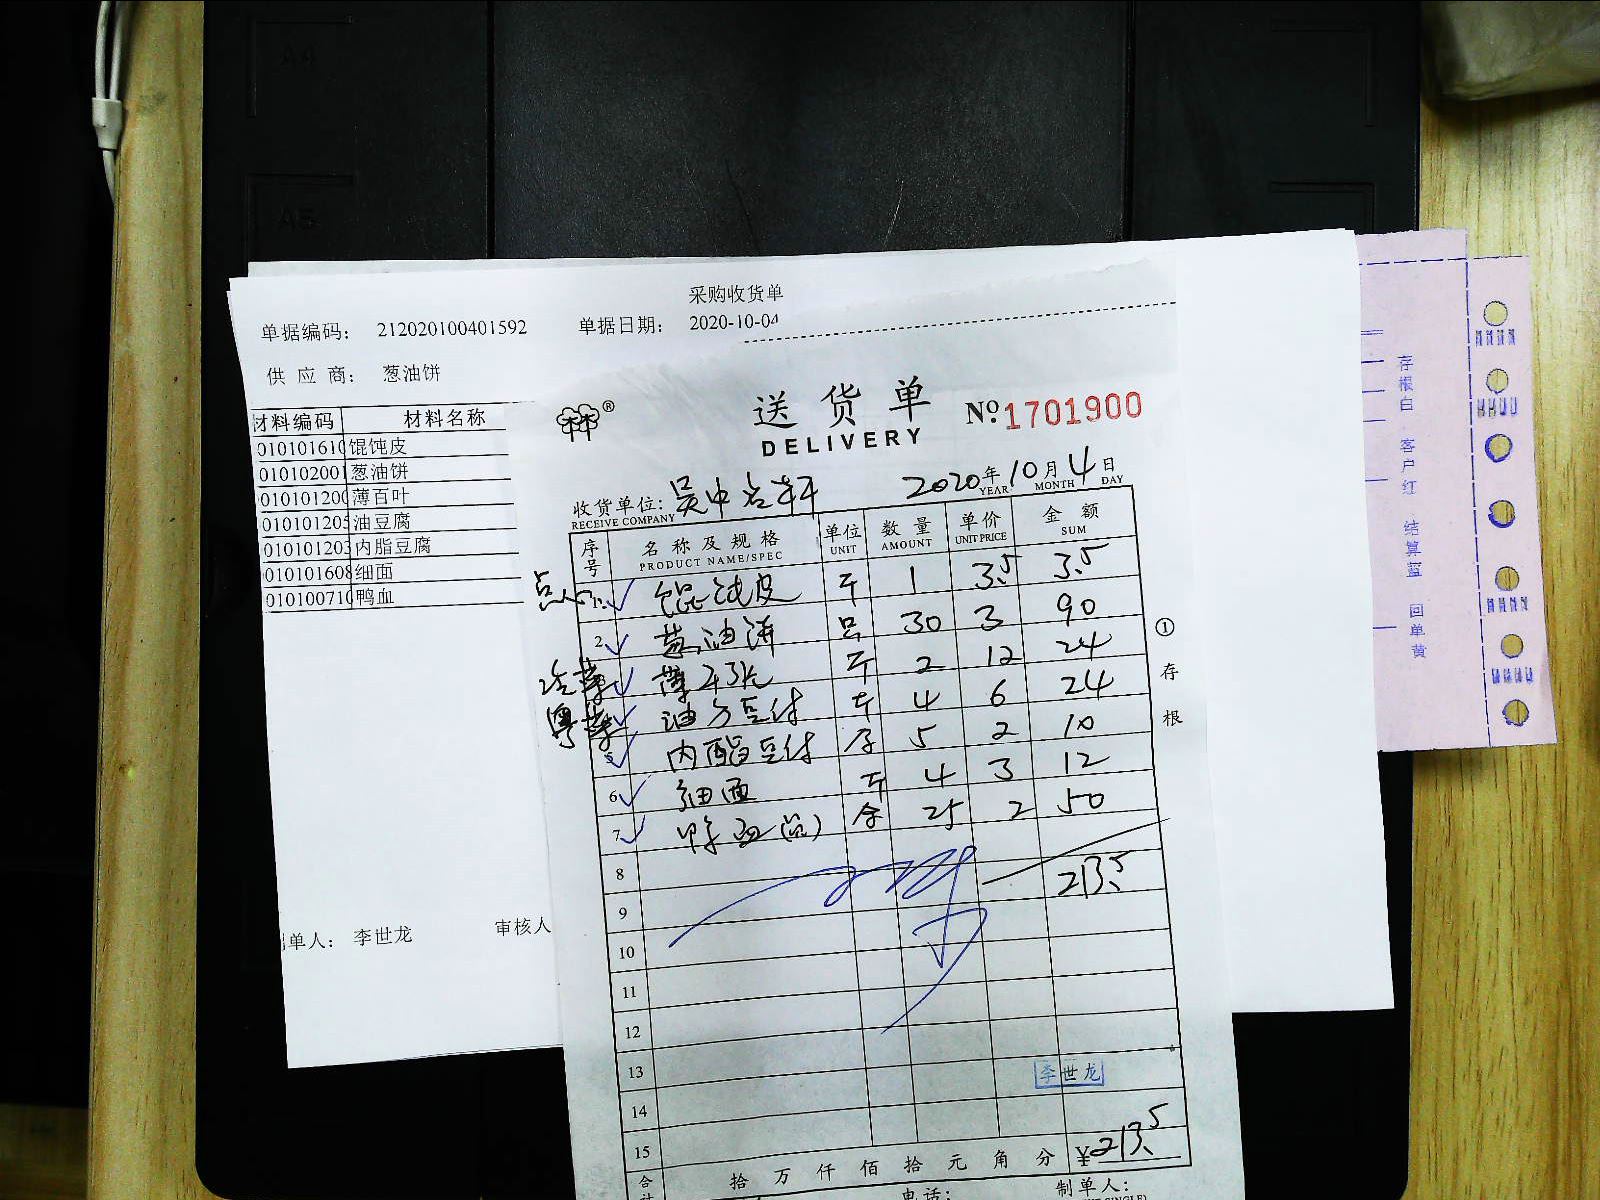 采购收货单
单据编码: 212020100401592 单据日期: 2020-10-04
供应商: 葱油饼
材料编码 材料名称
010101610 馄饨皮
010102001 葱油饼
010101200 薄百叶
010101205 油豆腐
010101203 内脂豆腐
010101608 细面
010100710 鸭血
单人: 李世龙 审核人
送货单 №1701900
DELIVERY
收货单位: 吴中 2020年10月4日
RECEIVE COMPANY YEAR MONTH DAY
序号 名称及规格 单位 数量 单价 金额
PRODUCT NAME/SPEC UNIT AMOUNT UNIT PRICE SUM
点心 1 馄饨皮 斤 1 3.5 3.5
2 葱油饼 只 30 3 90
冷菜 薄 斤 2 12 24
粤菜 油方豆付 斤 4 6 24
5 内酯豆付 5 2 10
6 细面 斤 4 3 12
7 鸭血 盒 25 2 50
8 213.5
9
10
11
12
13 李世龙
14
15
合计 拾万仟佰拾元角分 ¥213.5
电话: 制单人:
①存根
存根白 客户红 结算蓝 回单黄
A4
A5